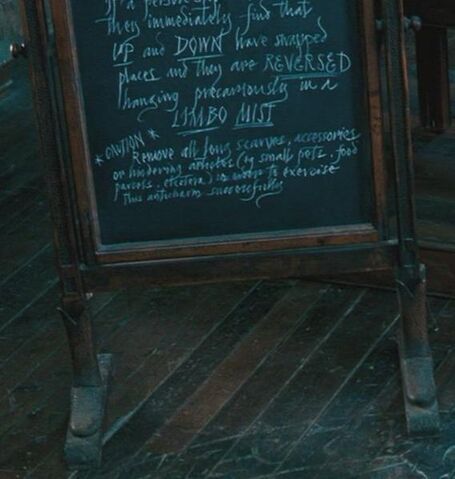 if a person
they immediately find that
UP and DOWN have swapped
places and they are REVERSED
hanging precariously in a
LIMBO MIST
*CAUTION* Remove all long scarves, accessories
or hindering articles (ig small pets, food
parcels, etcetera) in order to exercise
this anticharm successfully